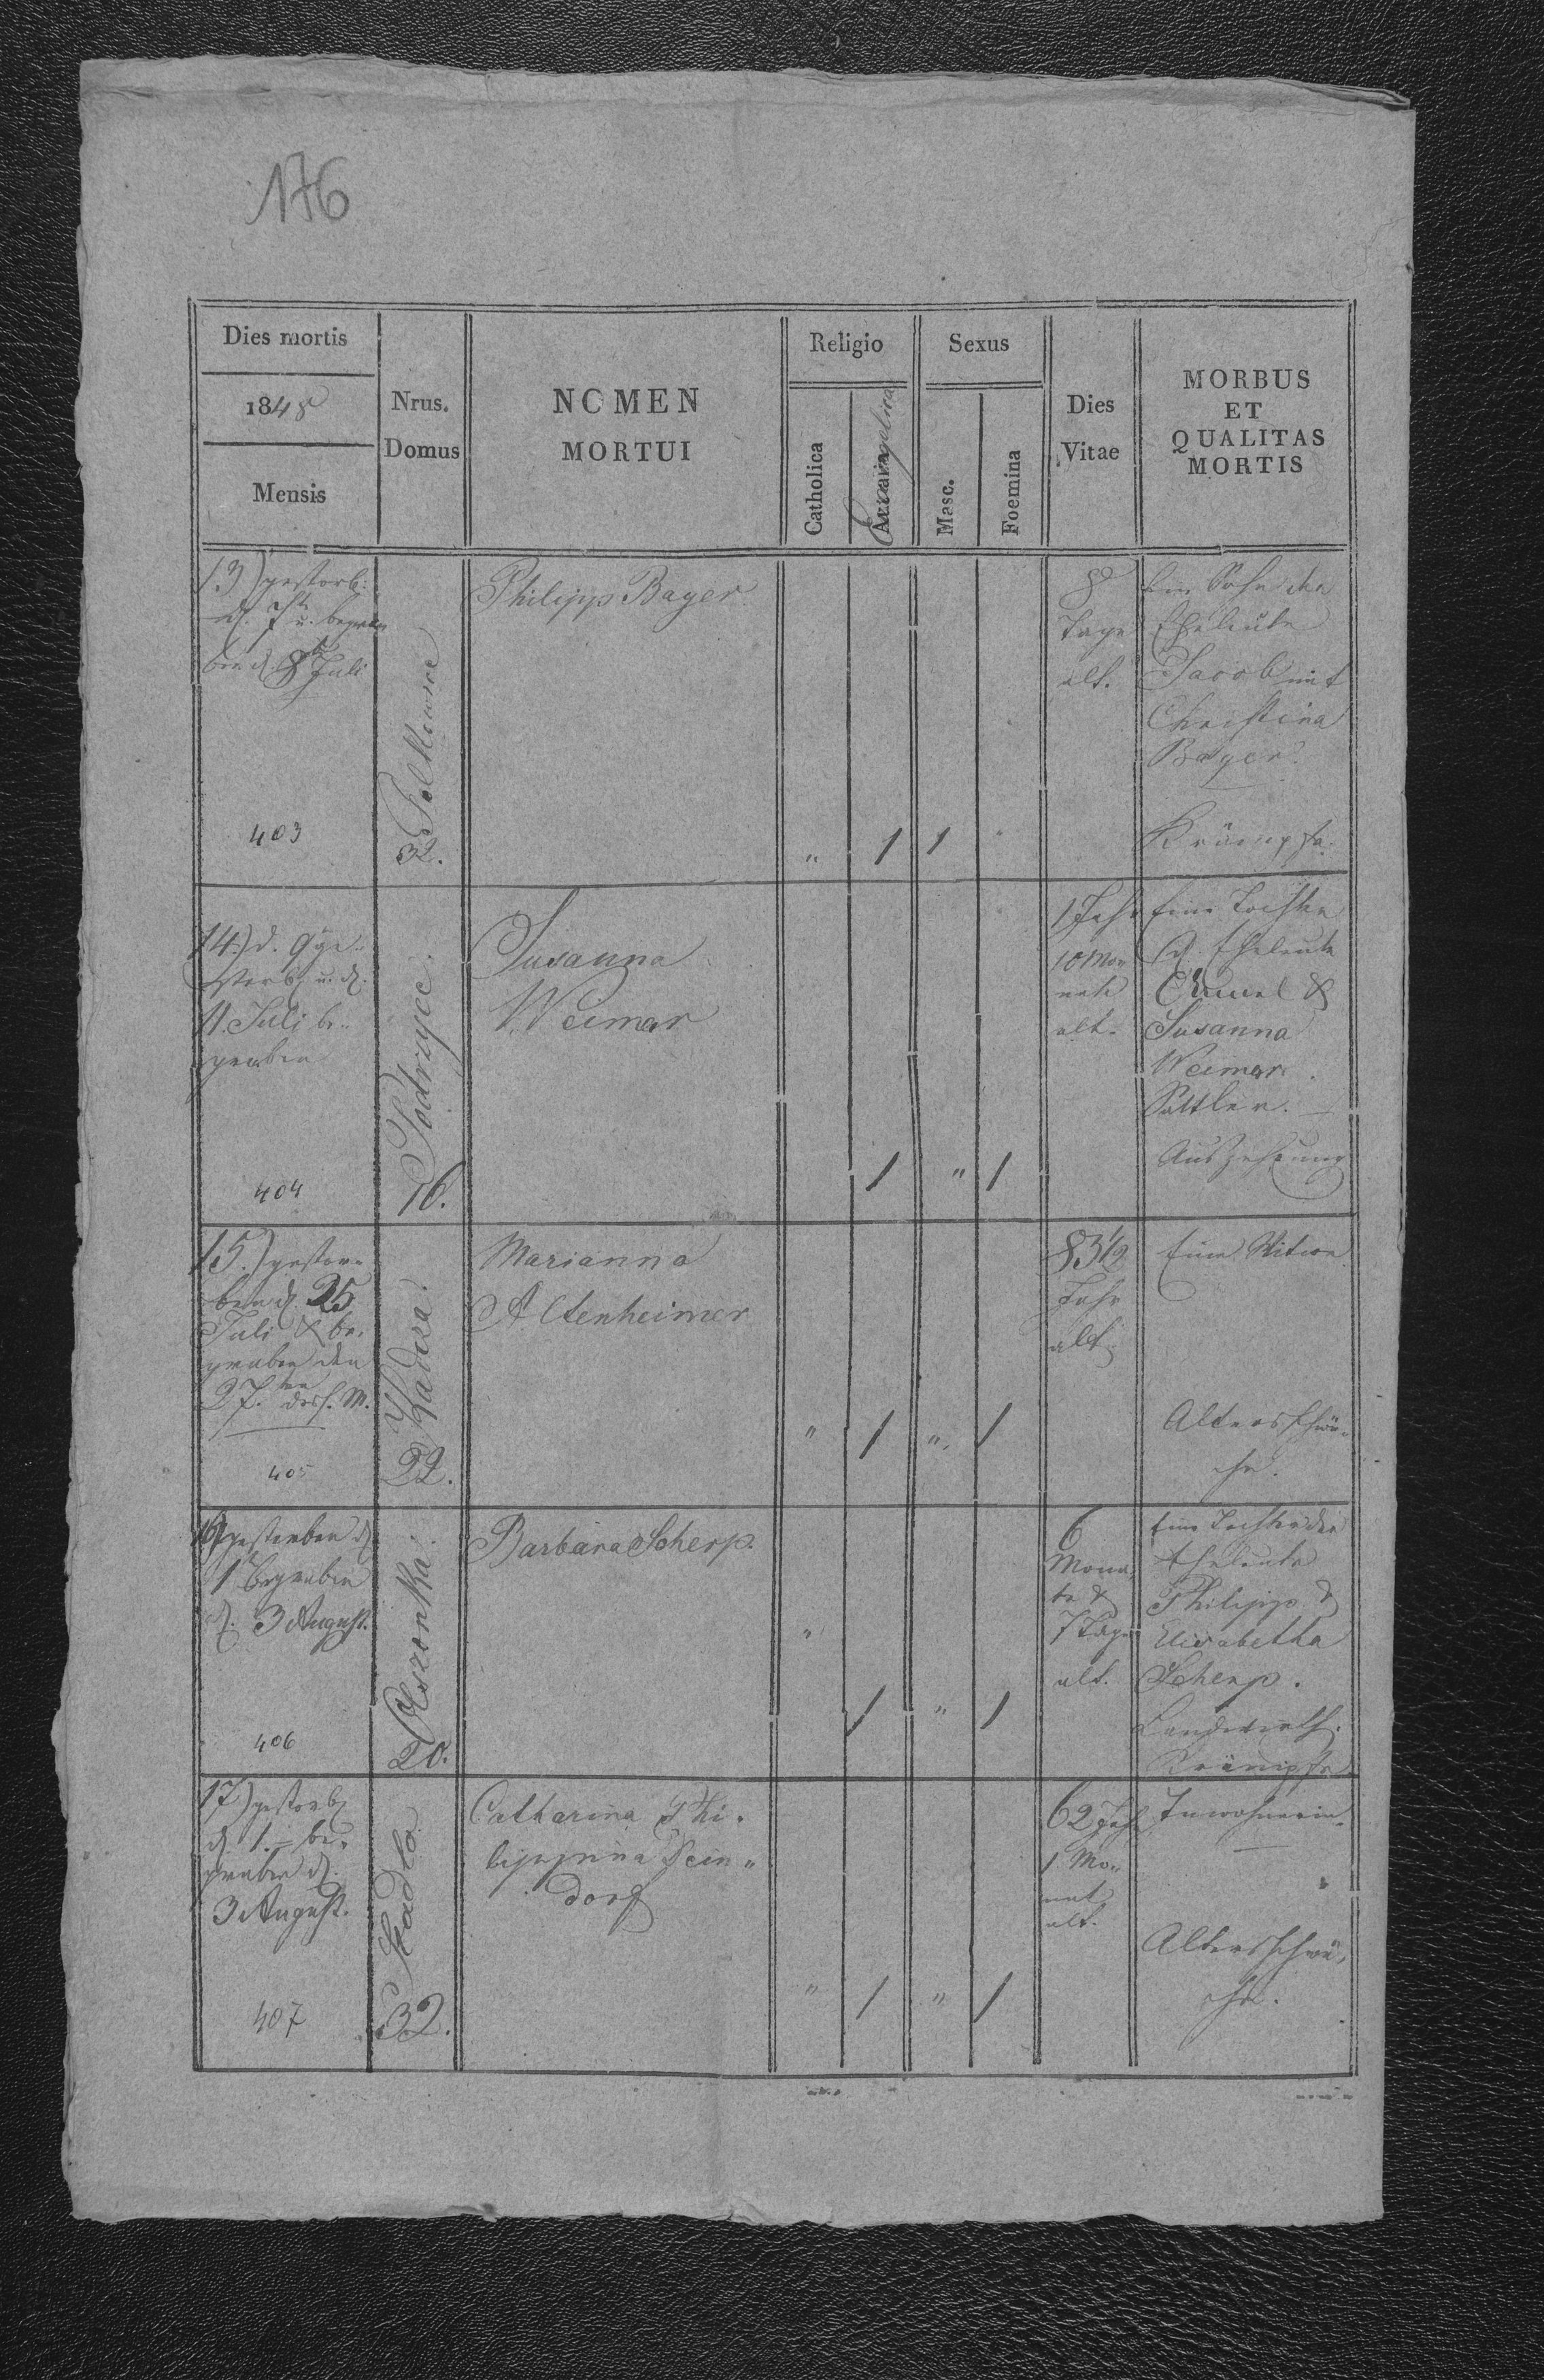 176
Dies mortis
1848
Mensis
Nrus.
Domus
NOMEN
MORTUI
Religio
Catholica
Evangelica
Sexus
Masc.
Foemina
Dies
Vitae
MORBUS
ET
QUALITAS
MORTIS
13) gestorb:
d. 7t u. begra
ben d. 8t Juli
403
32.
Philipp Bayer
" 1 1 "
8
Tage
alt.
Ein Sohn der
Eheleute
Jacob mit
Christina
Bayer.
Krämpfe.
14.) d. 9 ge-
storb. u. d.
11. Juli be-
graben
404
16.
Susanna
Weimar
1 " 1
1 Jahr
10 Mo
nate
alt.
Eine Tochter
d. Eheleute
&
Susanna
Weimar.
Sattler.
Auszehrung
15.) gestor-
ben d. 25
Juli & be-
graben den
27.ten dess. M.
405
Kadcza.
22.
Marianna
Altenheimer
" 1 " 1
83 1/2
Jahr
alt.
Eine Witwe
Altersschwä-
che.
16) gestorben d
1 begraben
d. 3 August.
406
Oleszonka.
20.
Barbara Scherp.
" 1 " 1
6
Mona-
te &
7 Tage
alt.
Eine Tochter der
Eheleute
Philipp &
Elisabetha
Scherp.
Landwirth.
Krämpfe
17) gestorb
d. 1. be-
graben d.
3 August.
407
Stadlo
32.
Catharina Phi-
lippina Dein-
dorf
" 1 " 1
62 Jahr
1 Mo-
nat
alt.
Inwohnerin.
Altersschwä-
che.